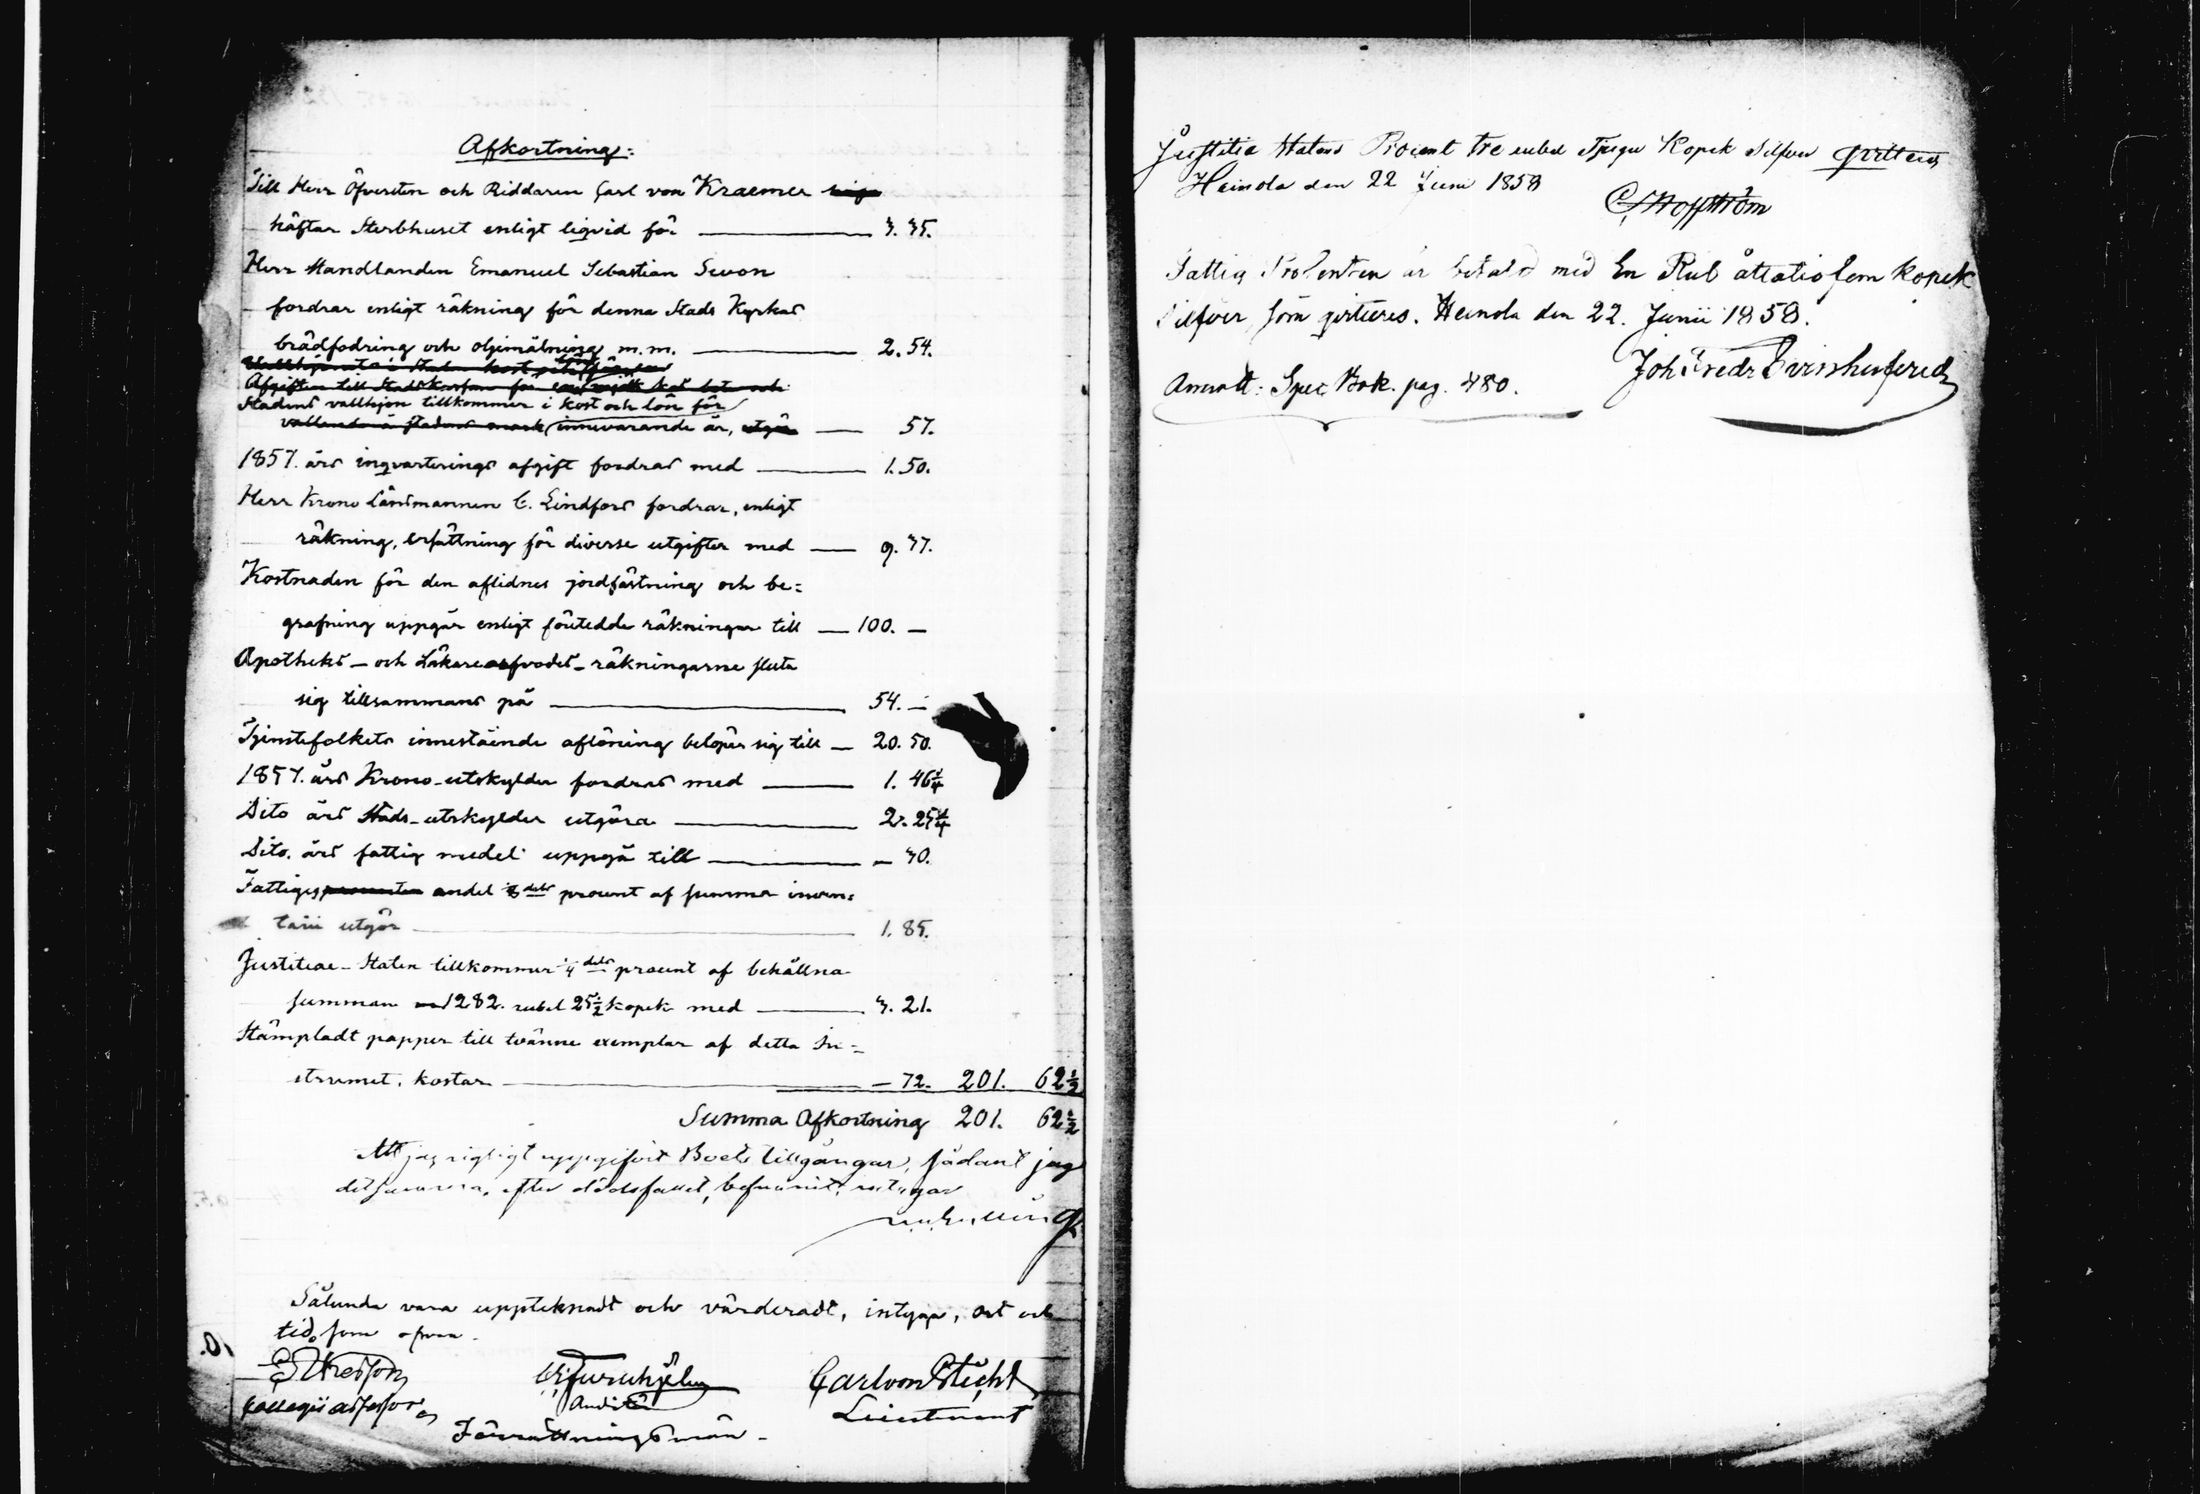 Afkortning:
Till Herr Öfversten och Riddaren Carl von Kraemer
häftar Sterbhuset enligt liqvid för 3. 35.
Herr Handlanden Emanuel Sebastian Sevon
fordrar enligt räkning för denna Stads Kyrkas
brädfodring och oljemålning m.m. 2. 54.
Stadens vallhjon tillkommer i kost och lön för
innevarande år, 57.
1857. års inqvarterings afgift fordras med 1. 50.
Herr Krono Länsmannen C. Lindfors fordrar, enligt
räkning, ersättning för diverse utgifter med 9. 37.
Kostnaden för den aflidnes jordfästning och be=
grafning uppgår enligt förtedde räkningar till 100. —
Apotheks- och Läkarearfvodes-räkningarne sluta
sig tillsammans på 54. —
Tjenstefolkets innestående aflöning belöper sig till 20. 50.
1857. års Krono-utskylder fordras med 1. 46 1/4
Dito års Stads-utskylder utgöra 2. 25 1/4
Dito. års fattig medel uppgå till — 30.
Fattiges andel 1/8 dels procent af summa inven=
tarii utgör 1. 85.
Justitiae-Staten tillkommer 1/4 dels procent af behållna
summan 1282. rubel 25 1/2 kopek med 3. 21.
Stämpladt papper till tvänne exemplar af detta In=
strument, kostar — 72. 201. 62 1/2
Summa Afkortning 201. 62 1/2
Att jag rigtigt uppgifvit Boets tillgångar, sådant jag
detsamma, efter dödsfallet, befunnit, intygar
Sålunda vara upptecknadt och värderadt, intyga, ort och
tid, som ofvan.
Carl von
Collegii Assessor Auditör Lieutenant
Förrättningsmän
Justitiæ Statens Procent tre rubel Tjugu Kopek Silfver qvitteras
Heinola den 22 Juni 1858
Fattig Procenten är betald med En Rub åttatiofem kopek
Silfver, som qvitteras. Heinola den 22. Junii 1858.
Joh Fredr
Anmält: Spec Bok. pag. 480.